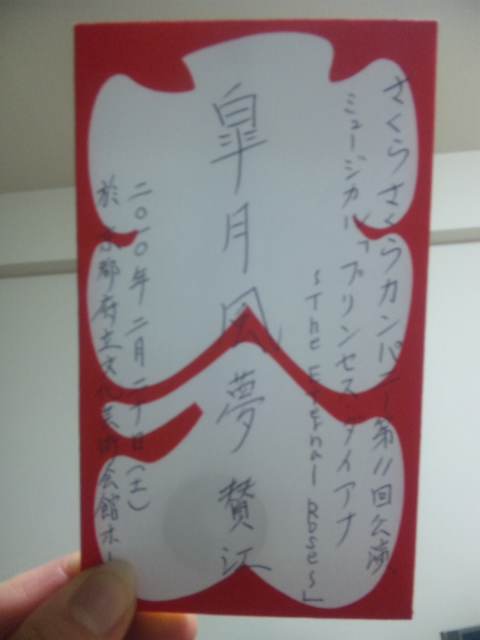 さくらさくらカンパニー第11回公演
ミュージカル「プリンセス・ダイアナ
〜The Eternal Roses〜」
皐月風夢賛江
二〇一〇年二月二十日(土)
於 京都府立文化芸術会館ホー